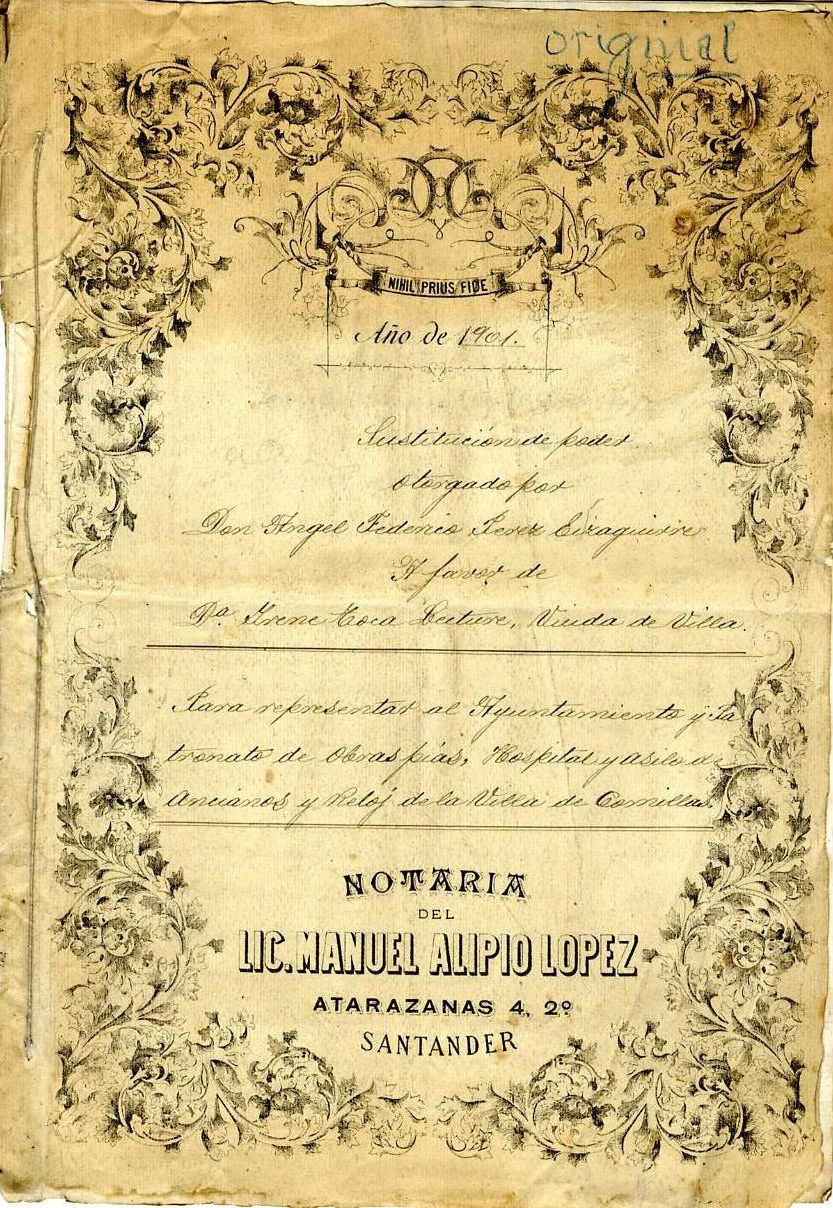 original
NIHIL PRIUS FIDE
Año de 1901.
Sustitución de poder
otorgado por
Don Angel Federico Perez Eizaguirre
A favor de
Dª. Irene Toca Lecture, Viuda de Villa.
Para representar al Ayuntamiento y Pa
tronato de Obras pías, Hospital y asilo de
Ancianos y Reloj de la Villa de Comillas.
NOTARIA
DEL
LIC. MANUEL ALIPIO LOPEZ
ATARAZANAS 4, 2º
SANTANDER